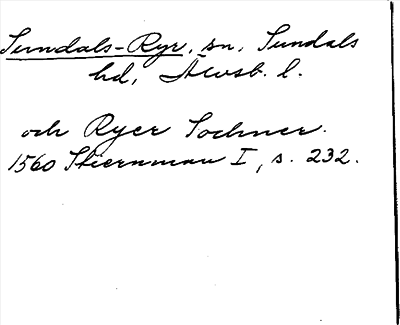 Sundals-Ryr, sn, Sundals
hd, Älvsb. l.
och Ryer Sochner.
1560 Stiernman I, s. 232.